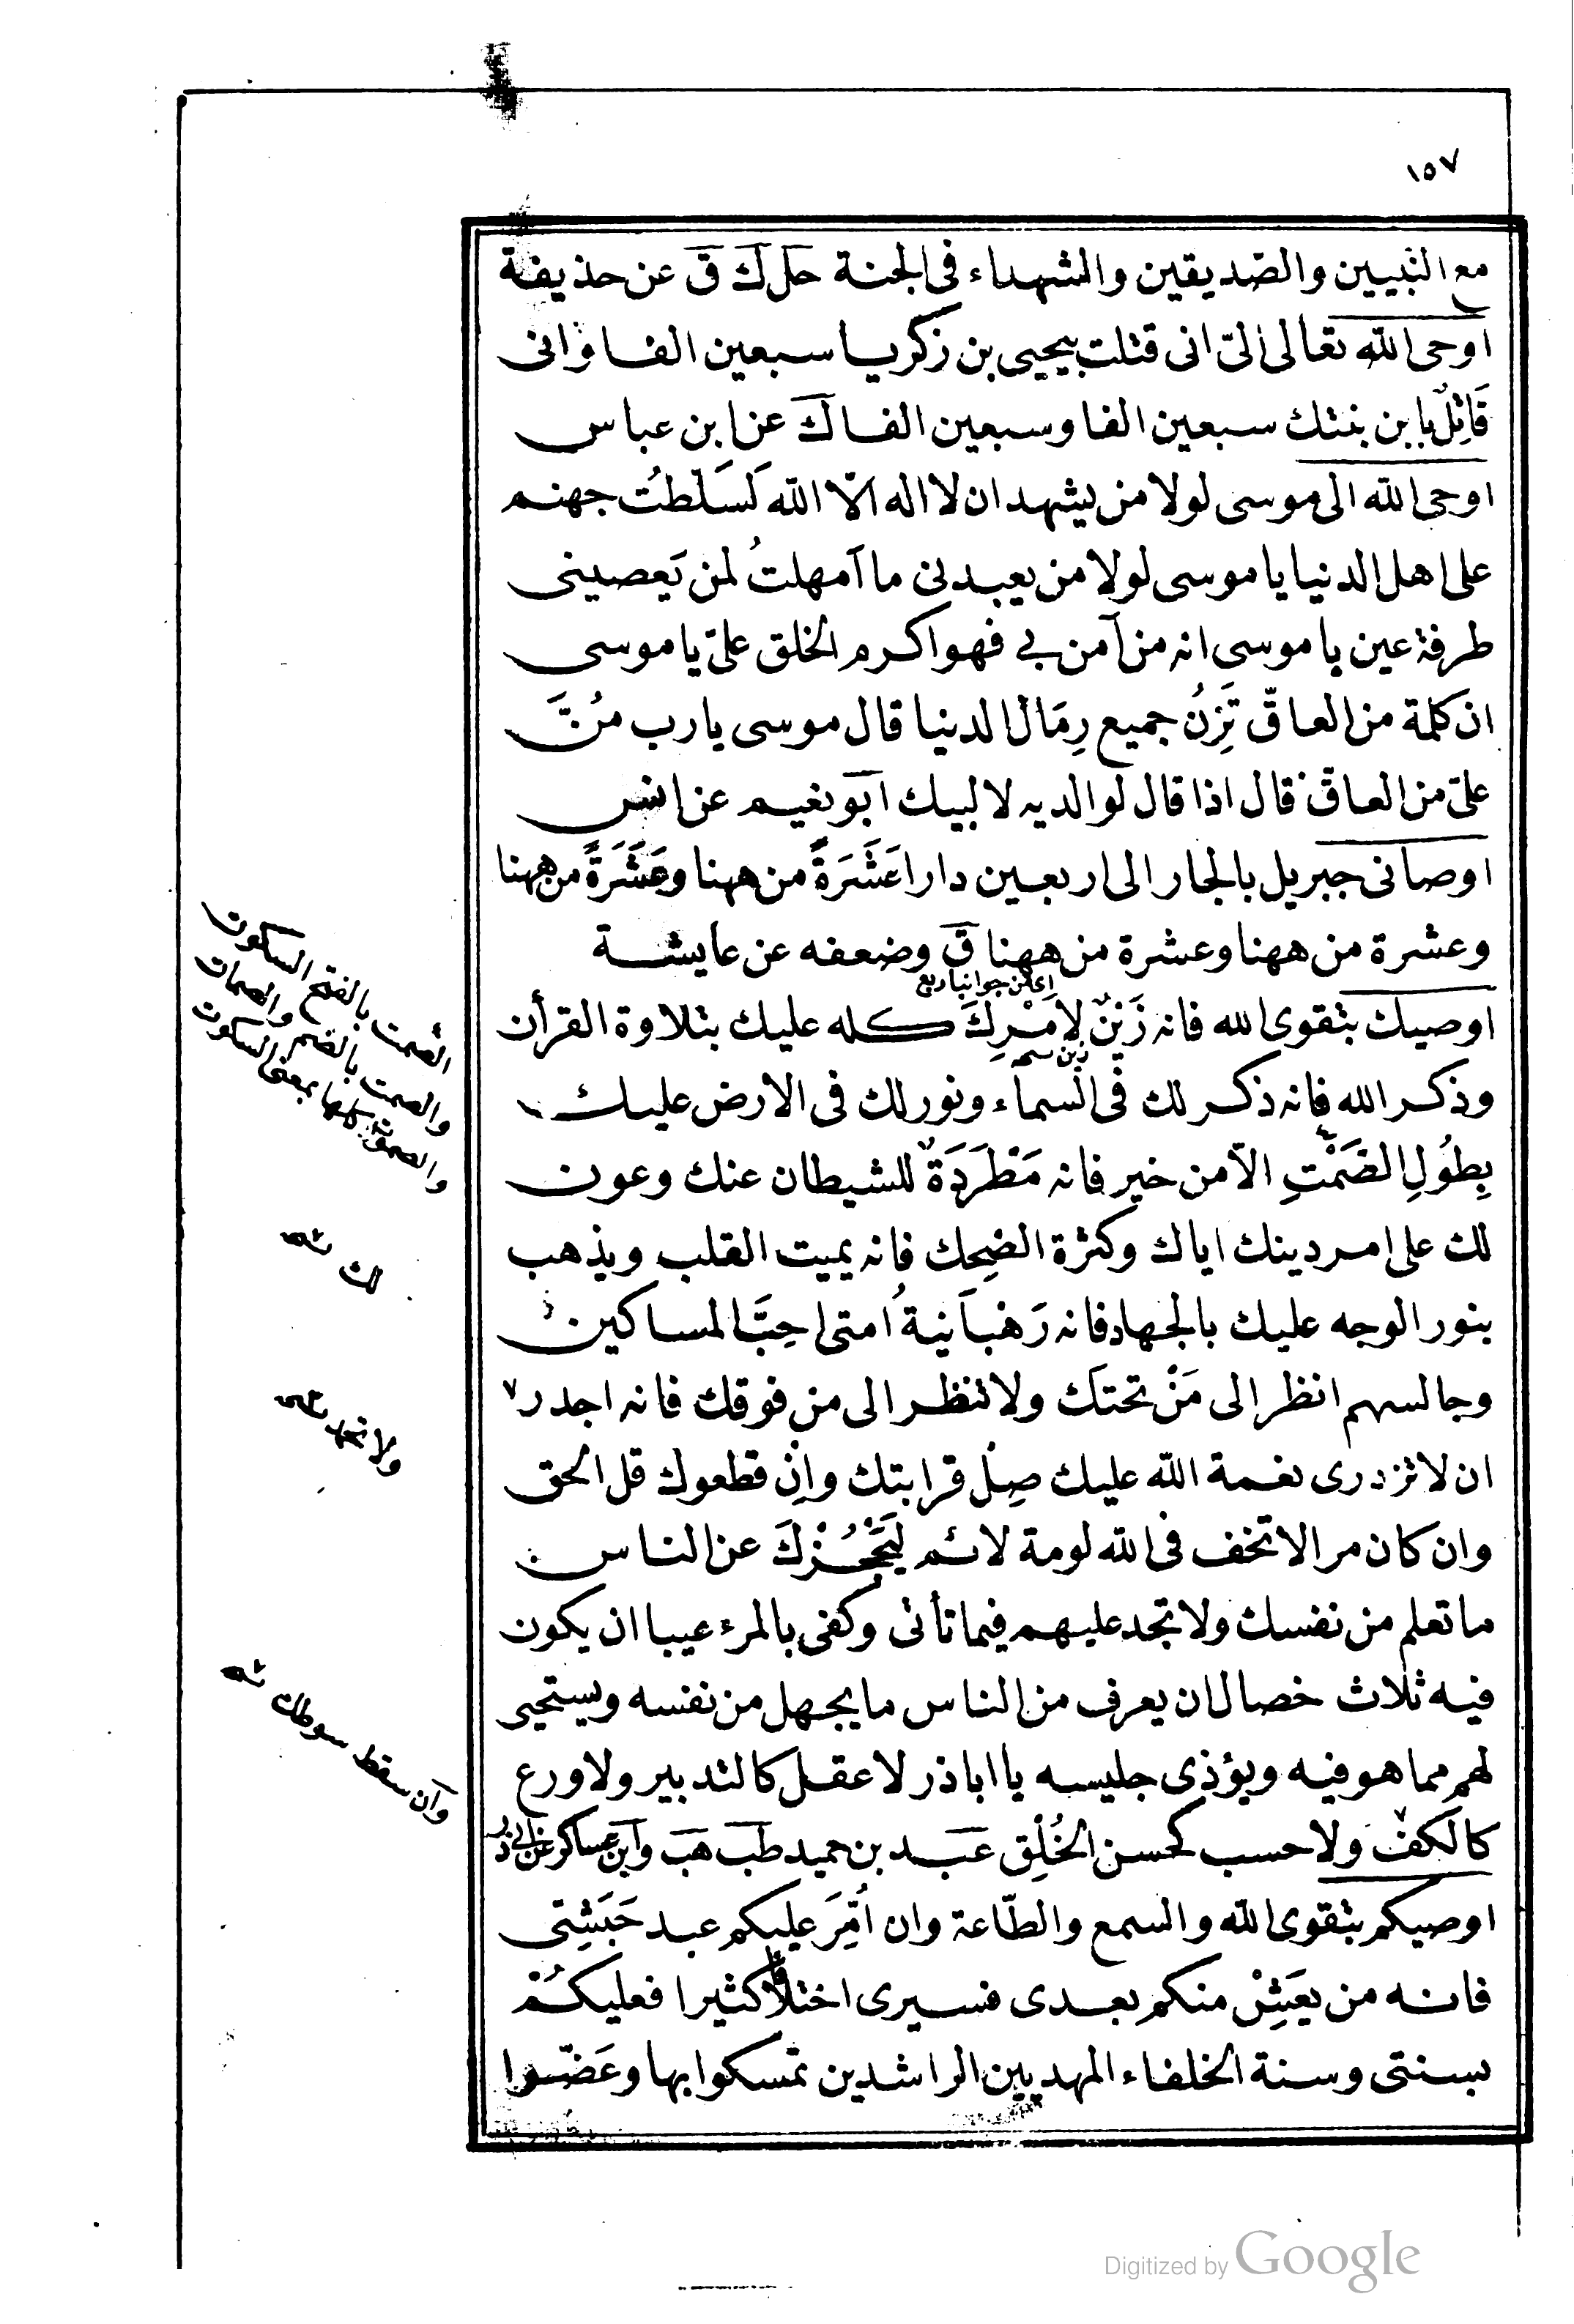 ١٥٧
مع النبيين والصديقين والشهداء فى الجنة حل ك ق عن حذيفة
اوحى الله تعالى الىّ انى قتلت بيحيى بن زكريا سبعين الفا وانى
قَاتِلٌ بابن بنتك سبعين الفا وسبعين الفا ك عن ابن عباس
اوحى الله الى موسى لولا من يشهد ان لا اله الّا الله لَسَلَّطتُ جهنم
على اهل الدنيا يا موسى لولا من يعبدنى ما اَمهلتُ لمن يَعصينى
طرفة عين يا موسى انه من آمن بى فهو اكرم الخلق علىّ يا موسى
ان كلمة من العاقّ تَزِنُ جميع رِمَال الدنيا قال موسى يا رب مَن
علىّ من العاقّ قال اذا قال لوالديه لا لبيك ابو نعيم عن انس
اوصانى جبريل بالجار الى اربعين دارا عَشَرَةً من ههنا وعَشَرَةً من ههنا
وعشرة من ههنا وعشرة من ههنا ق وضعفه عن عايشة
اى كل من جوانبا ربع
اوصيك بتقوى الله فانه زَيْنٌ لِاَمْرِكَ كله عليك بتلاوة القرأن
زين سمه
وذكر الله فانه ذكر لك فى السماء ونور لك فى الارض عليك
بِطُولِ الصَّمْتِ الّا من خير فانه مَطْرَدَةٌ للشيطان عنك وعون
لك على امر دينك اياك وكثرة الضِحك فانه يميت القلب ويذهب
بنور الوجه عليك بالجهاد فانه رَهْبَانِيةُ امتى احِبَّ المساكين
وجالسهم انظر الى مَنْ تحتَك ولا تنظر الى من فوقك فانه اجدر ٧
ان لا تزدرى نعمة الله عليك صِلْ قرابتك وإنْ قطعوك قل الحق
وان كان مرا لا تخف فى الله لومة لائم لِيَحْجُزْكَ عن الناس
ما تعلم من نفسك ولا تجد عليهم فيما تأتى وكفى بالمرء عيبا ان يكون
فيه ثلاث خصال ان يعرف من الناس ما يجهل من نفسه ويستحيى
لهم مما هو فيه ويؤذى جليسه يا اباذر لا عقل كالتدبير ولا ورع
كالكفّ ولا حسب كحسن الخُلُق عبد بن حميد طب هب وابن عساكر عن ابى ذر
اوصيكم بتقوى الله والسمع والطّاعة وان اُمِّرَ عليكم عبد حَبَشِىّ
فانه من يعَشِْ منكم بعدى فسيرى اختلافا كثيرا فعليكُمْ
بسنتى وسنة الخلفاء المهديين الراشدين تمسكوا بها وعَضّوا
الصمت بالفتح السكوت
والصمت بالضم والصمات
والصموت كلها بمعنى السكوت
لك
ولا تجد
وان سقط سوطك
Digitized by Google